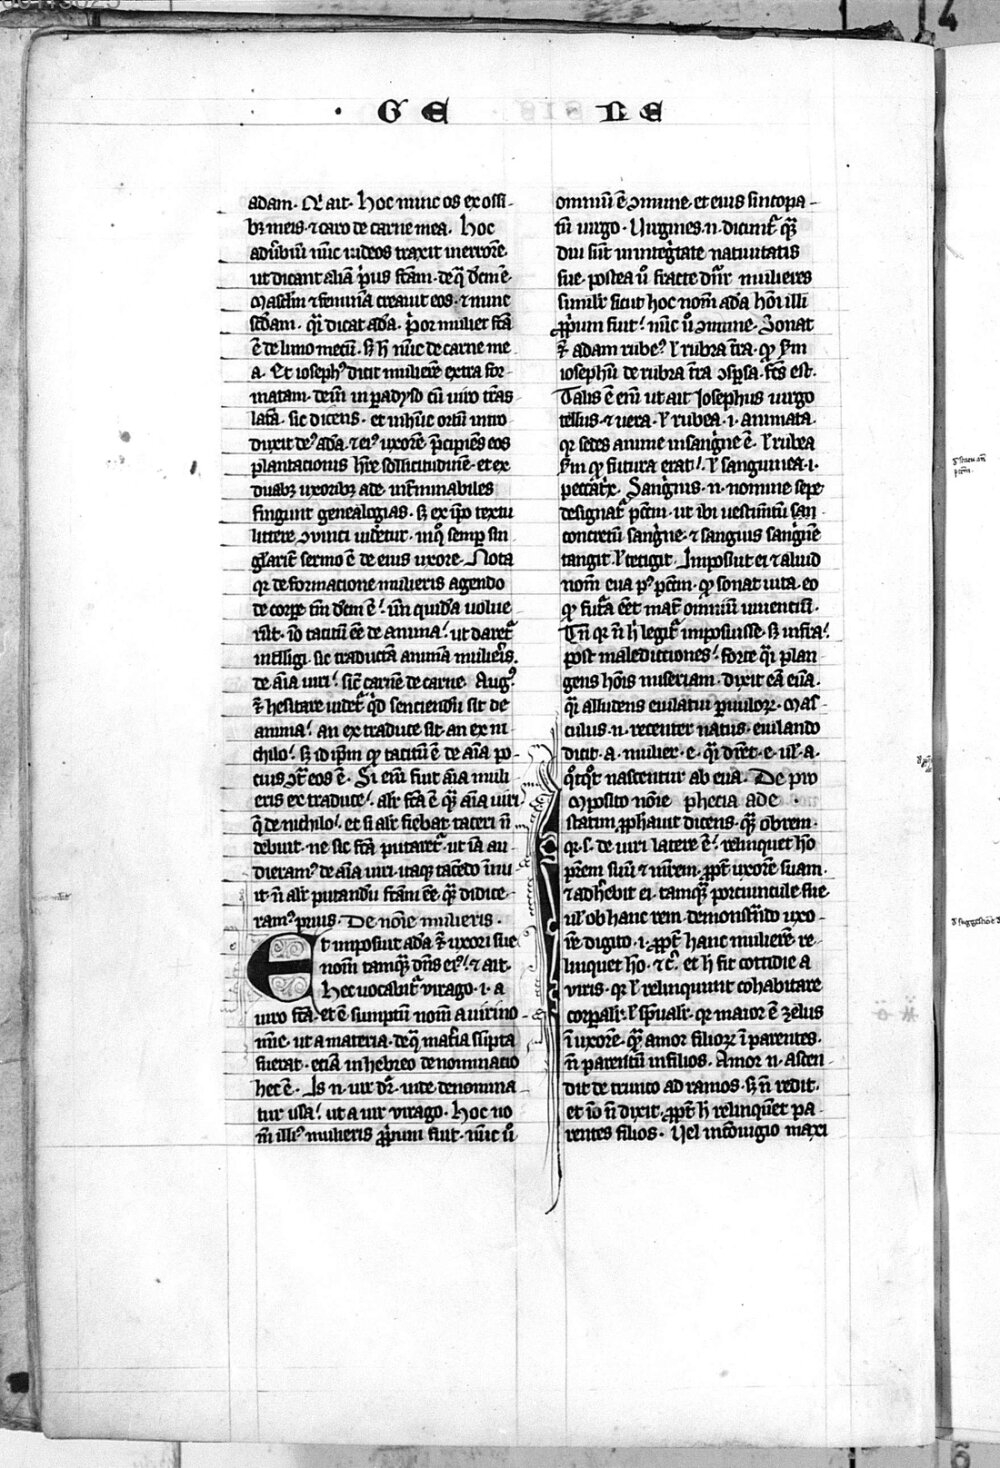 · GE NE
adam. Et ait. Hoc nunc os ex ossi-
bꝫ meis. ⁊ caro de carne mea. Hoc
adv̄biū nūc iudeos traxit in errorē.
ut dicant aliā pͥus fc̄am. de qͣ dc̄m ē.
Masclm̄ ⁊ feminā creauit eos. ⁊ nunc
sc̄dam. qͣi dicat adā. pͥor mulier fc̄a
ē de limo mecū. sꝫ h̄ nūc de carne me
a. Et iosephꝰ dicit mulierē extra for
matam. dein̄ in padysū cū uiro trās
latā. sic dicens. et in hūc ortū intro
duxit deꝰ adā. ⁊ eiꝰ uxorē p̄cipiēs eos
plantacionis hr̄e sollicitudinē. et ex
duabꝫ uxoribꝫ ade. int̄minabiles
fingunt genealogias. sꝫ ex ip̄o textu
littere ꝯuinci uidētur. in qͦ semp sin
glarit̄ sermo ē de eius uxore. Nota
qꝛ de formacione mulieris agendo
de corpe tm̄ dc̄m ē. un̄ quidā volue
rūt. iō tacitū eē de anima. ut daret̄
intelligi. sic traductā animā mulieris.
de aīa uiri. sic̄ carnē de carne. Augꝰ.
⁊̄ hesitare uidet̄ qͥd senciendū sit de
anima. an ex traduce sit. an ex ni
chilo. sꝫ id ip̄m qꝫ tacitū ē de aīa po
cius ꝯt̄ eos ē. Si eī fuit aīa muli
eris ex traduce. alr̄ fc̄a ē qͣꝫ aīa uiri
q̄ de nichilo. et si alr̄ fiebat taceri n̄
debuit. ne sic fc̄a putaret̄. ut iā au
dieramꝰ de aīa uiri. itaqꝫ tacēdo īnu
it n̄ alr̄ putandū fc̄am eē. qͣꝫ didice
ramꝰ prius. De noīe mulieris.
Et imposuit adā ⁊̄ uxori sue
nom̄ tamqͣꝫ dn̄s eiꝰ. ⁊ ait.
Hec uocabit̄ virago. i. a
uiro fc̄a. et ē sumptū nom̄ a uiri no
mīe. ut a materia. de qͣ mat̄ia sūpta
fuerat. eciā in hebreo denominacio
hec ē. Is n̄. uir dr̄. inde denomina
tur issa. ut a uir virago. Hoc no
m̄ illiꝰ mulieris ꝓpͥum fuit. nūc ū
omniū ē ꝯmune. et eius sincopa-
tū uirgo. Virgines. n̄. dicunt̄ qͣꝫ
diu sūt in integͥtate natiuitatis
sue. postea ū fracte dn̄r mulieres
similr̄ sicut hoc nom̄ adā hoī illi
ꝓpͥum fuit. nūc ū ꝯmune. Sonat
⁊̄ adam rubeꝰ ł rubra tr̄a. qꝫ sm̄
iosephū de rubra tr̄a ꝯspsa. fc̄s est.
Talis ē eīm ut ait Iosephus uirgo
tellus. ⁊ uera. ł rubea. i. animata.
qꝛ sedes anime in sangͥne ē. ł rubea
sm̄ qꝫ futura erat. ł sanguinea. i.
pecc̄atͥx. Sangͥnis. n̄. nomine sepe
designat̄ pc̄tm. ut ibi uestim̄tū san
concretū sangͥne. ⁊ sanguis sangͥnē
tangit. ł tetigit. Imposuit ei ⁊ aliud
nom̄ eua pꝰ pc̄tm. qꝫ sonat uita. eo
qꝫ fut̄a eēt mat̄ omniū uiuentiū.
Tn̄ qꝛ n̄ h̄ legit̄ imposuisse. sꝫ infra.
post maledictiones. forte qͣi plan
gens hoīs miseriam. dixit eā euā.
qͣi alludens eiulatui puuloꝝ. Mas
culus. n̄. recenter natus. eiulando
dicit. a. mulier. e. qͣi dr̄et. e. ul̄. a.
qͦtqͦt nascentur ab eua. De pro
mposito noīe phecia ade.
Statim ꝓphauit dicens. qͣꝫ obrem.
qꝛ. s. de uiri latere ē. relinquet hō
pr̄em suū ⁊ mr̄em. ꝓpt̄ uxorē suam.
⁊ adh̄ebit ei. tamqͣꝫ porciuncule sue
ul̄ ob hanc rem. demonstͣndo uxo-
rē digito. i. ꝓpt̄ hanc mulierē re-
linquet hō. ⁊ c̄. et h̄ fit cottidie a
viris. qꝛ ł relinquunt cohabitare
corpalit̄. ł sp̄ualit̄. qꝛ maior ē zelus
ī uxorē. qͣꝫ amor filioꝝ ī parentes.
n̄ parentū in filios. Amor n̄. ascen
dit de trunco ad ramos. sꝫ n̄ redit.
et iō n̄ dixit. ꝓpt̄ h̄ relinquet pa-
rentes filios. Vel in cōiugio maxi